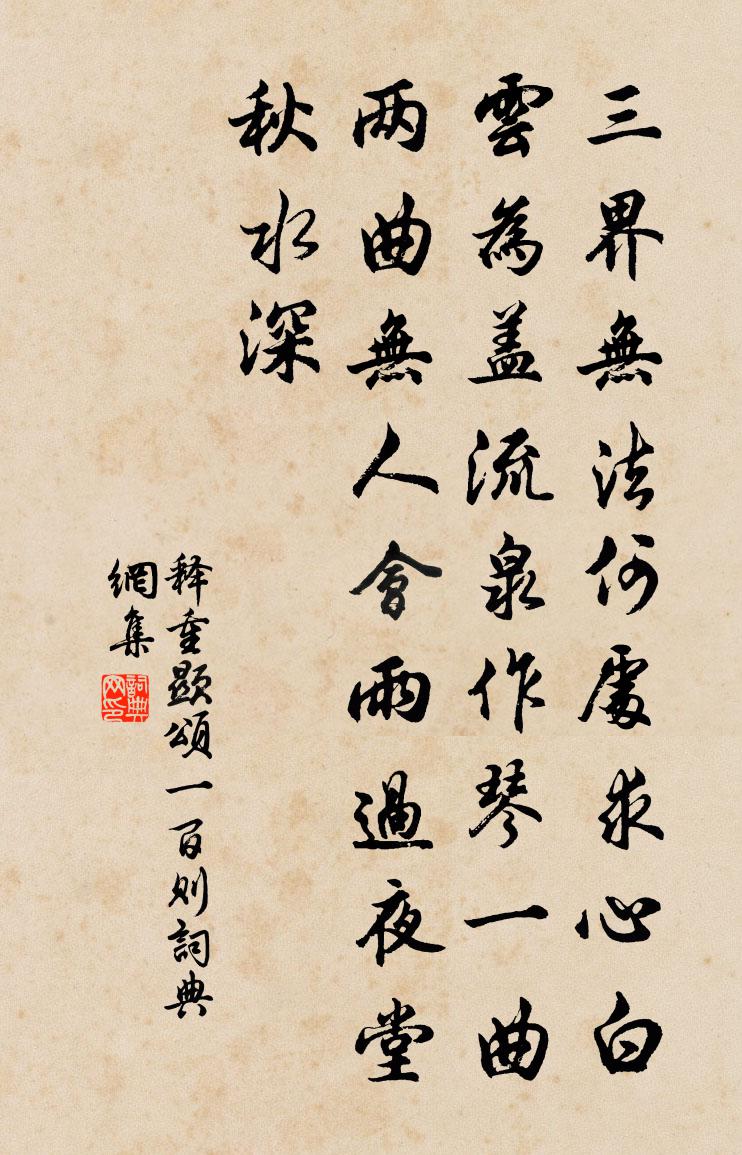 三界無法何處求心白
雲為盖流泉作琴一曲
两曲無人會雨過夜堂
秋水深
释重顯頌一百則詞典
網集
詞典
网印